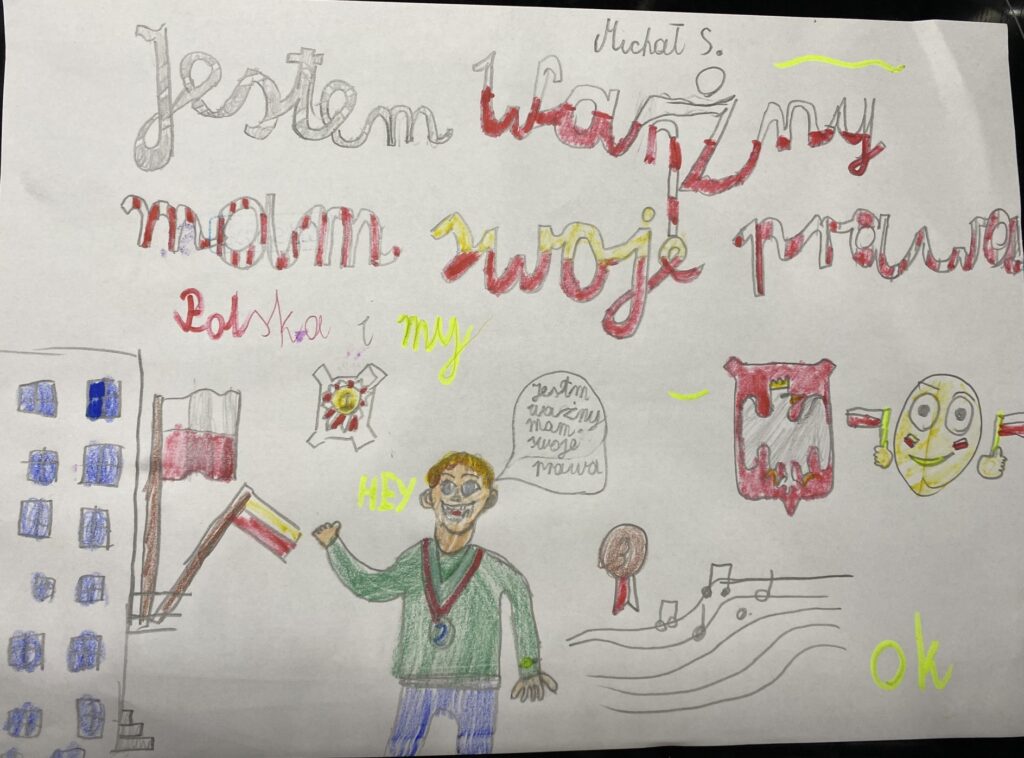 Michał S.
Jestem Ważny
mam swoje prawa
Polska i my
HEY
Jestm
ważny
mam
swoje
prawa
ok